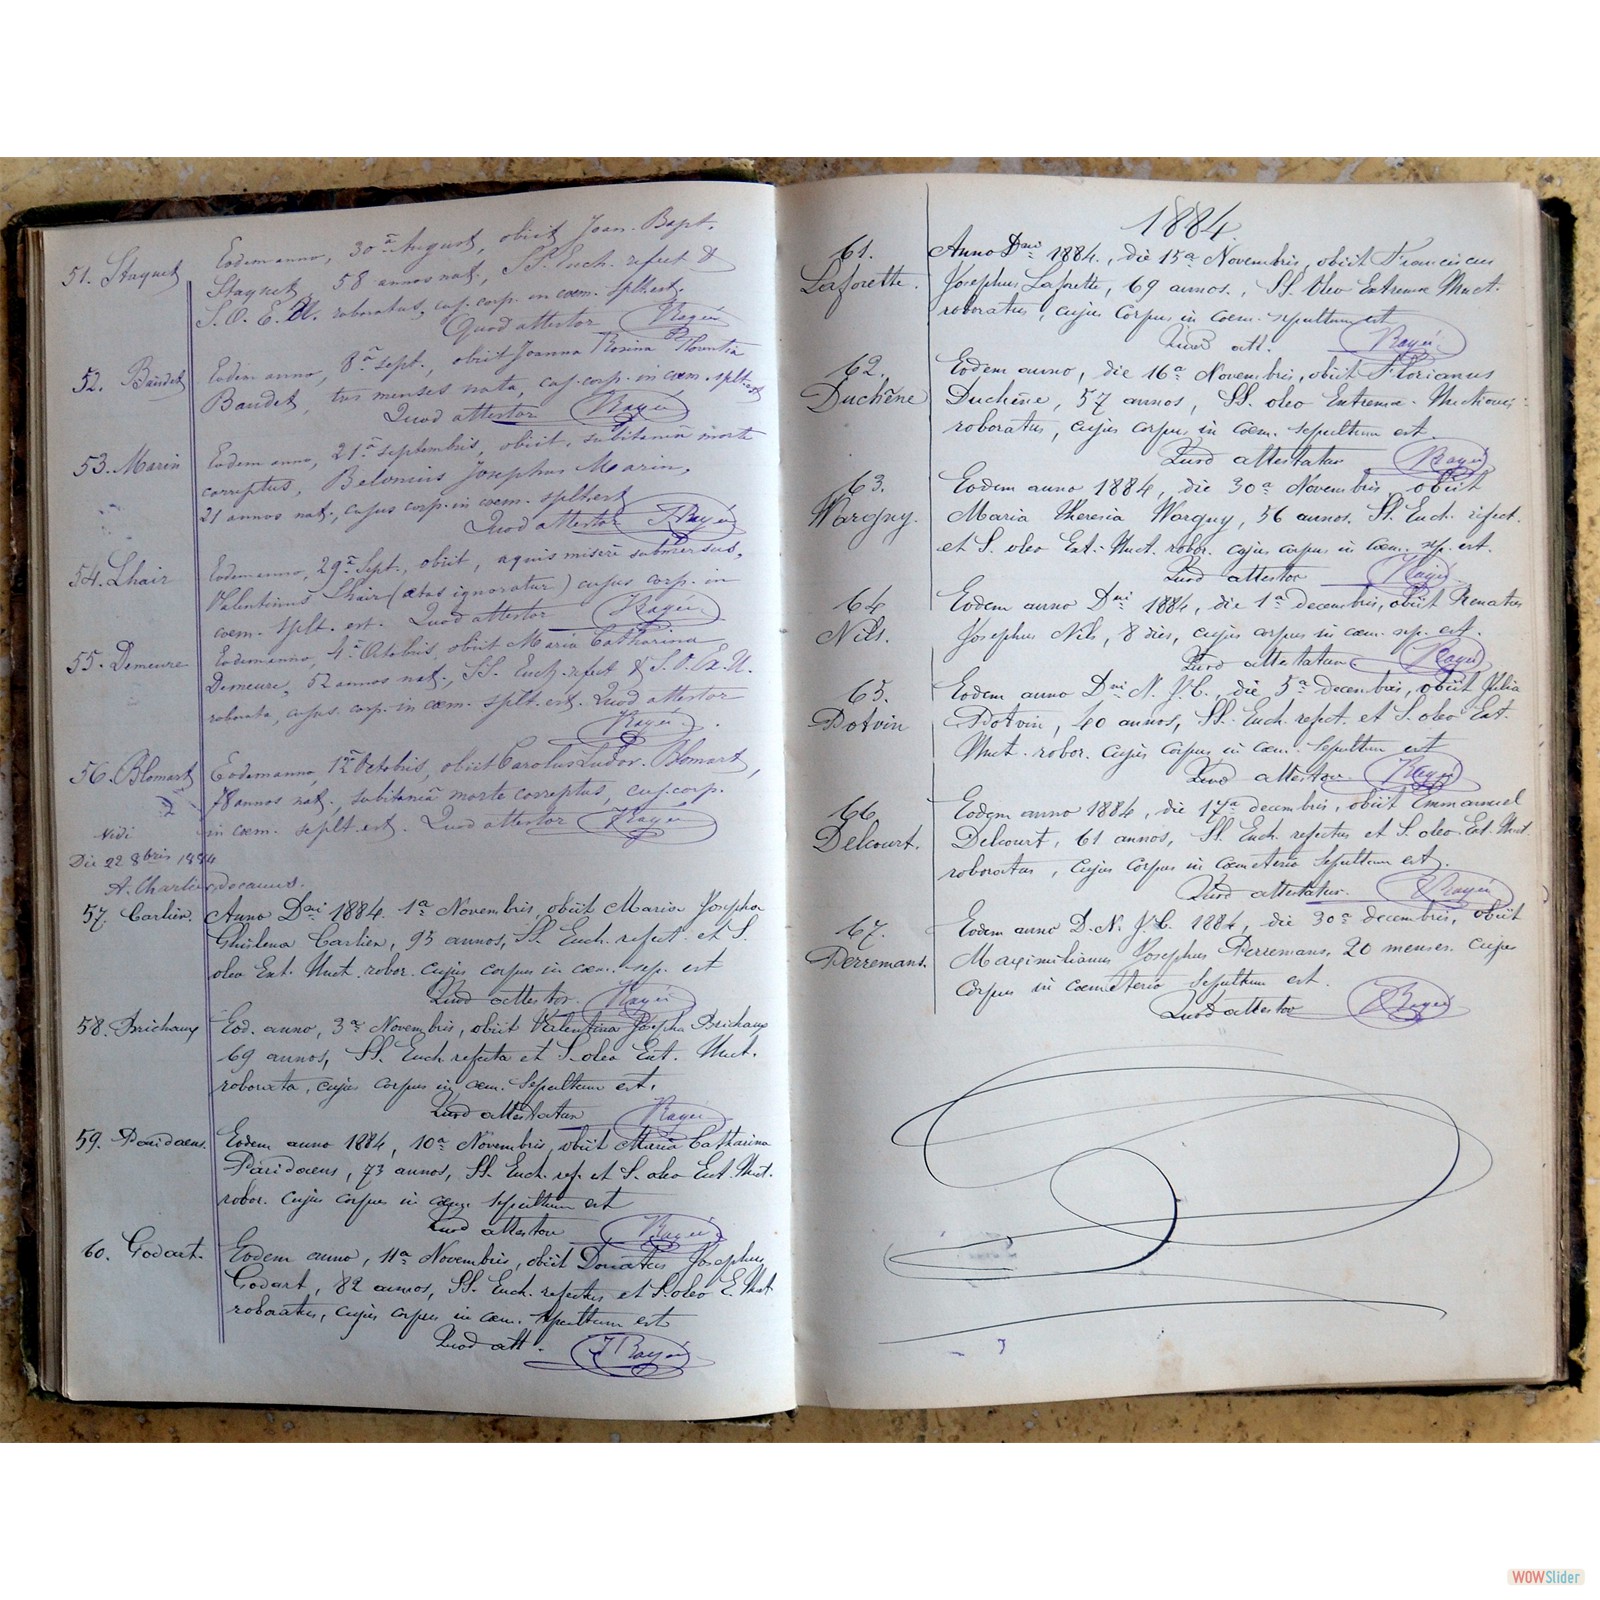 51. Staquet
Eodem anno, 30ª August, obiit Joan. Bapt.
Staquet, 58 annos nat., SS. Euch. refect &
S. O. E. U. roboratus, cuj. corp. in cœm. splt. est.
Quod attestor Rayée
52. Baudet
Eodem anno, 8ª sept., obiit Joanna Rosina Florentia
Baudet, tres menses nata, cuj. corp. in cœm. splt. est
Quod attestor Rayée
53. Marin
Eodem anno, 21ª septembris, obiit, subitaniâ morte
correptus, Belonius Josephus Marin,
21 annos nat., cujus corp. in cœm. splt. est
Quod attestor J Rayée
54. Lhair
Eodem anno, 29ª Sept., obiit, aquis misere submersus,
Valentinus Lhair (ætas ignoratur) cujus corp. in
cœm. splt. est. Quod attestor Rayée
55. Demeure
Eodem anno, 4ª Octobris, obiit Maria Catharina
Demeure, 52 annos nat., SS. Euch. refect & S. O. Ex. U.
roborata, cujus corp. in cœm. splt. est. Quod attestor
Rayée
56. Blomart
Eodem anno, Octobris, obiit Carolus Ludov. Blomart,
78 annos nat., subitaniâ morte correptus, cuj. corp.
in cœm. splt. est. Quod attestor Rayée
Vidi
Die 22 8bris 1884
A. Charlier, decanus.
57. Carlier.
Anno Dni 1884. 1ª Novembris, obiit Maria Josepha
Ghislena Carlier, 95 annos, SS. Euch. refect. et S.
oleo Ext. Unct. robor. cujus corpus in cœm. sep. est
Quod attestor. Rayée
58. Brichaux
Eod. anno, 3ª Novembris, obiit Valentina Josepha Brichaux
69 annos, SS. Euch. refecta et S. oleo Ext. Unct.
roborata, cujus corpus in cœm. Sepultum est.
Quod attestatur Rayée
59. Paridaens.
Eodem anno 1884, 10ª Novembris, obiit Maria Catharina
Paridaens, 73 annos, SS. Euch. ref. et S. oleo Ext. Unct.
robor. cujus corpus in cœm. sepultum est
Quod attestor Rayée
60. Godart.
Eodem anno, 11ª Novembris, obiit Donatus Josephus
Godart, 82 annos, SS. Euch. refectus et S. oleo E. Unct
roboratus, cujus corpus in cœm. sepultum est
Quod att. J Rayée
1884
61.
Laforette.
Anno Dni 1884., die 15ª Novembris, obiit Franciscus
Josephus Laforette, 69 annos., SS. Oleo Extremæ Unct.
roboratus, cujus Corpus in Cœm. sepultum est
Quod att. Rayée
62.
Duchêne
Eodem anno, die 16ª Novembris, obiit Florianus
Duchêne, 57 annos, SS. oleo Extremæ Unctionis
roboratus, cujus corpus in cœm. sepultum est
Quod attestatur Rayée
63.
Wargny.
Eodem anno 1884, die 30ª Novembris obiit
Maria Theresia Wargny, 56 annos. SS. Euch. refect.
et S. oleo Ext. Unct. robor. cujus corpus in cœm. sep. est.
Quod attestor Rayée
64
Nils.
Eodem anno Dni 1884, die 1ª decembris, obiit Renatus
Josephus Nils, 8 dies, cujus corpus in cœm. sep. est.
Quod attestatur Rayée
65
Potvin
Eodem anno Dni N. J. C., die 5ª decembris, obiit Julia
Potvin, 40 annos, SS. Euch. refect. et S. oleo Ext.
Unct. robor. cujus Corpus in cœm. Sepultum est
Quod attestor Rayée
66
Delcourt.
Eodem anno 1884, die 17ª decembris, obiit Emmanuel
Delcourt, 61 annos, SS. Euch. refectus et S. oleo Ext. Unct.
roboratus, cujus Corpus in Cœmeterio Sepultum est.
Quod attestatur. Rayée
67.
Perremans.
Eodem anno D. N. J. C. 1884, die 30ª decembris, obiit
Maximilianus Josephus Perremans, 20 menses. cujus
Corpus in Cœmeterio Sepultum est.
Quod attestor J Rayée
WOWSlider